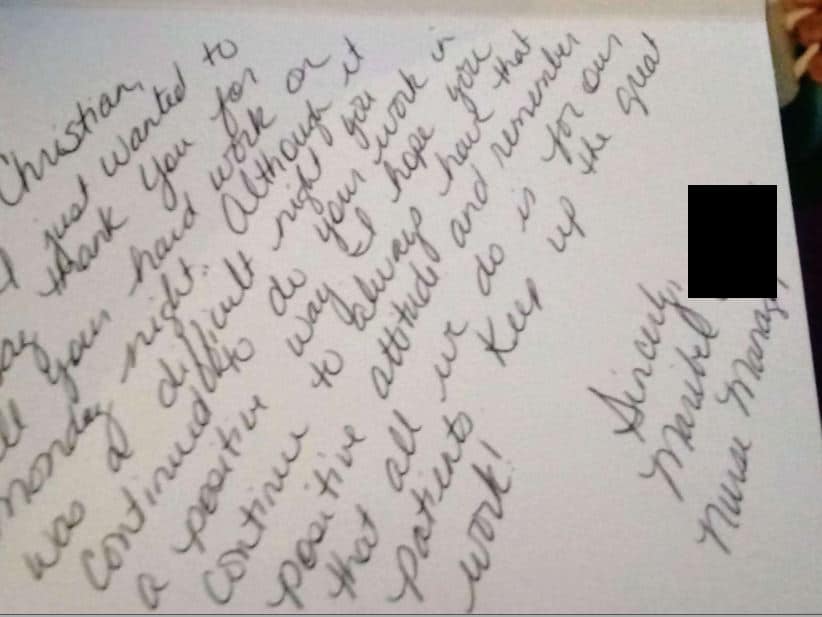 Christian,
I just wanted to
say thank you for
all your hard work on
monday night. Although it
was a difficult night you
continued to do your work in
a positive way. I hope you
continue to always have that
positive attitude and remember
that all we do is for our
patients. Keep up the great
work!
Sincerly,
Maribel
Nurse Manager